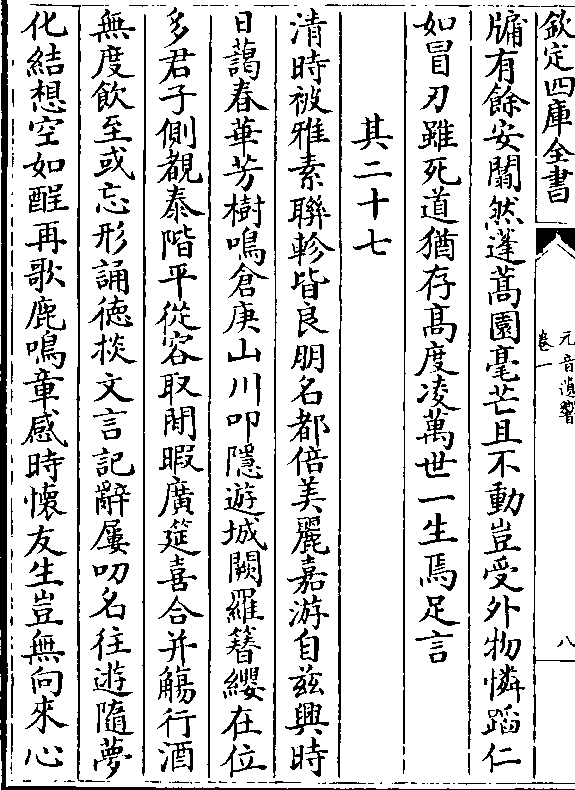 欽定四庫全書
元音遺響
卷一
八
牗有餘安闢然蓬蒿園毫芒且不動豈受外物憐蹈仁
如冒刃雖死道猶存高度凌萬世一生焉足言
其二十七
清時被雅素聯軫皆良朋名都倍美麗嘉游自兹興時
日藹春華芳樹鳴倉庚山川叩隱遊城闕羅簪纓在位
多君子側覩泰階平從容取閒暇廣筵喜合并觴行酒
無度飲至或忘形誦徳掞文言記辭屢叨名往遊隨夢
化結想空如酲再歌鹿鳴章感時懷友生豈無向來心